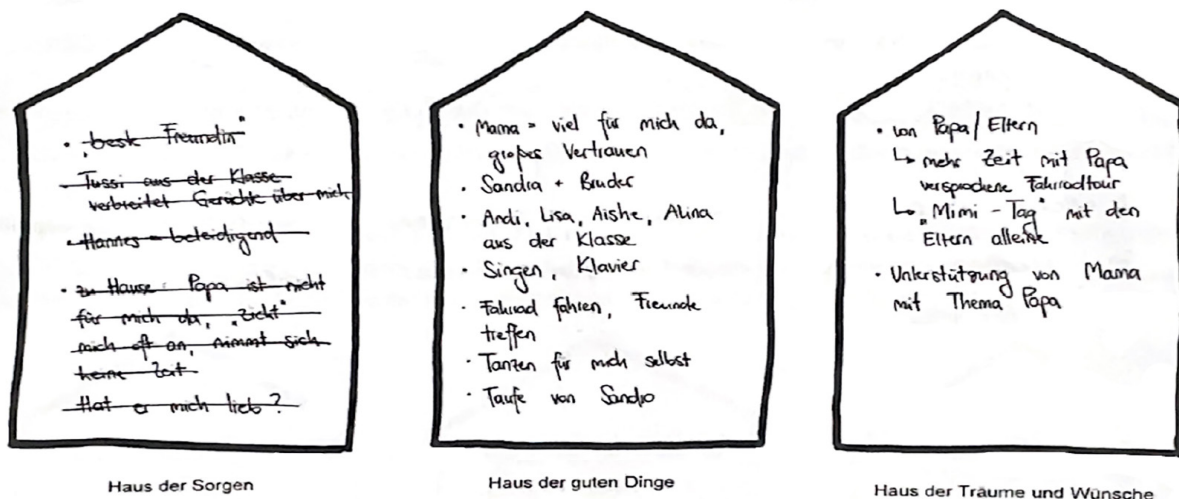 • „beste Freundin"
• Tussi aus der Klasse
verbreitet Gerüchte über mich
• Hannes = beleidigend
• zu Hause: Papa ist nicht
für mich da, „zickt"
mich oft an, nimmt sich
keine Zeit
Hat er mich lieb?
Haus der Sorgen
• Mama = viel für mich da,
großes Vertrauen
• Sandra + Bruder
• Andi, Lisa, Aishe, Alina
aus der Klasse
• Singen, Klavier
• Fahrrad fahren, Freunde
treffen
• Tanzen für mich selbst
• Taufe von
Haus der guten Dinge
• von Papa/Eltern
↳ mehr Zeit mit Papa
versprochene Fahrradtour
↳ „Mimi-Tag" mit den
Eltern alleine
• Unterstützung von Mama
mit Thema Papa
Haus der Träume und Wünsche